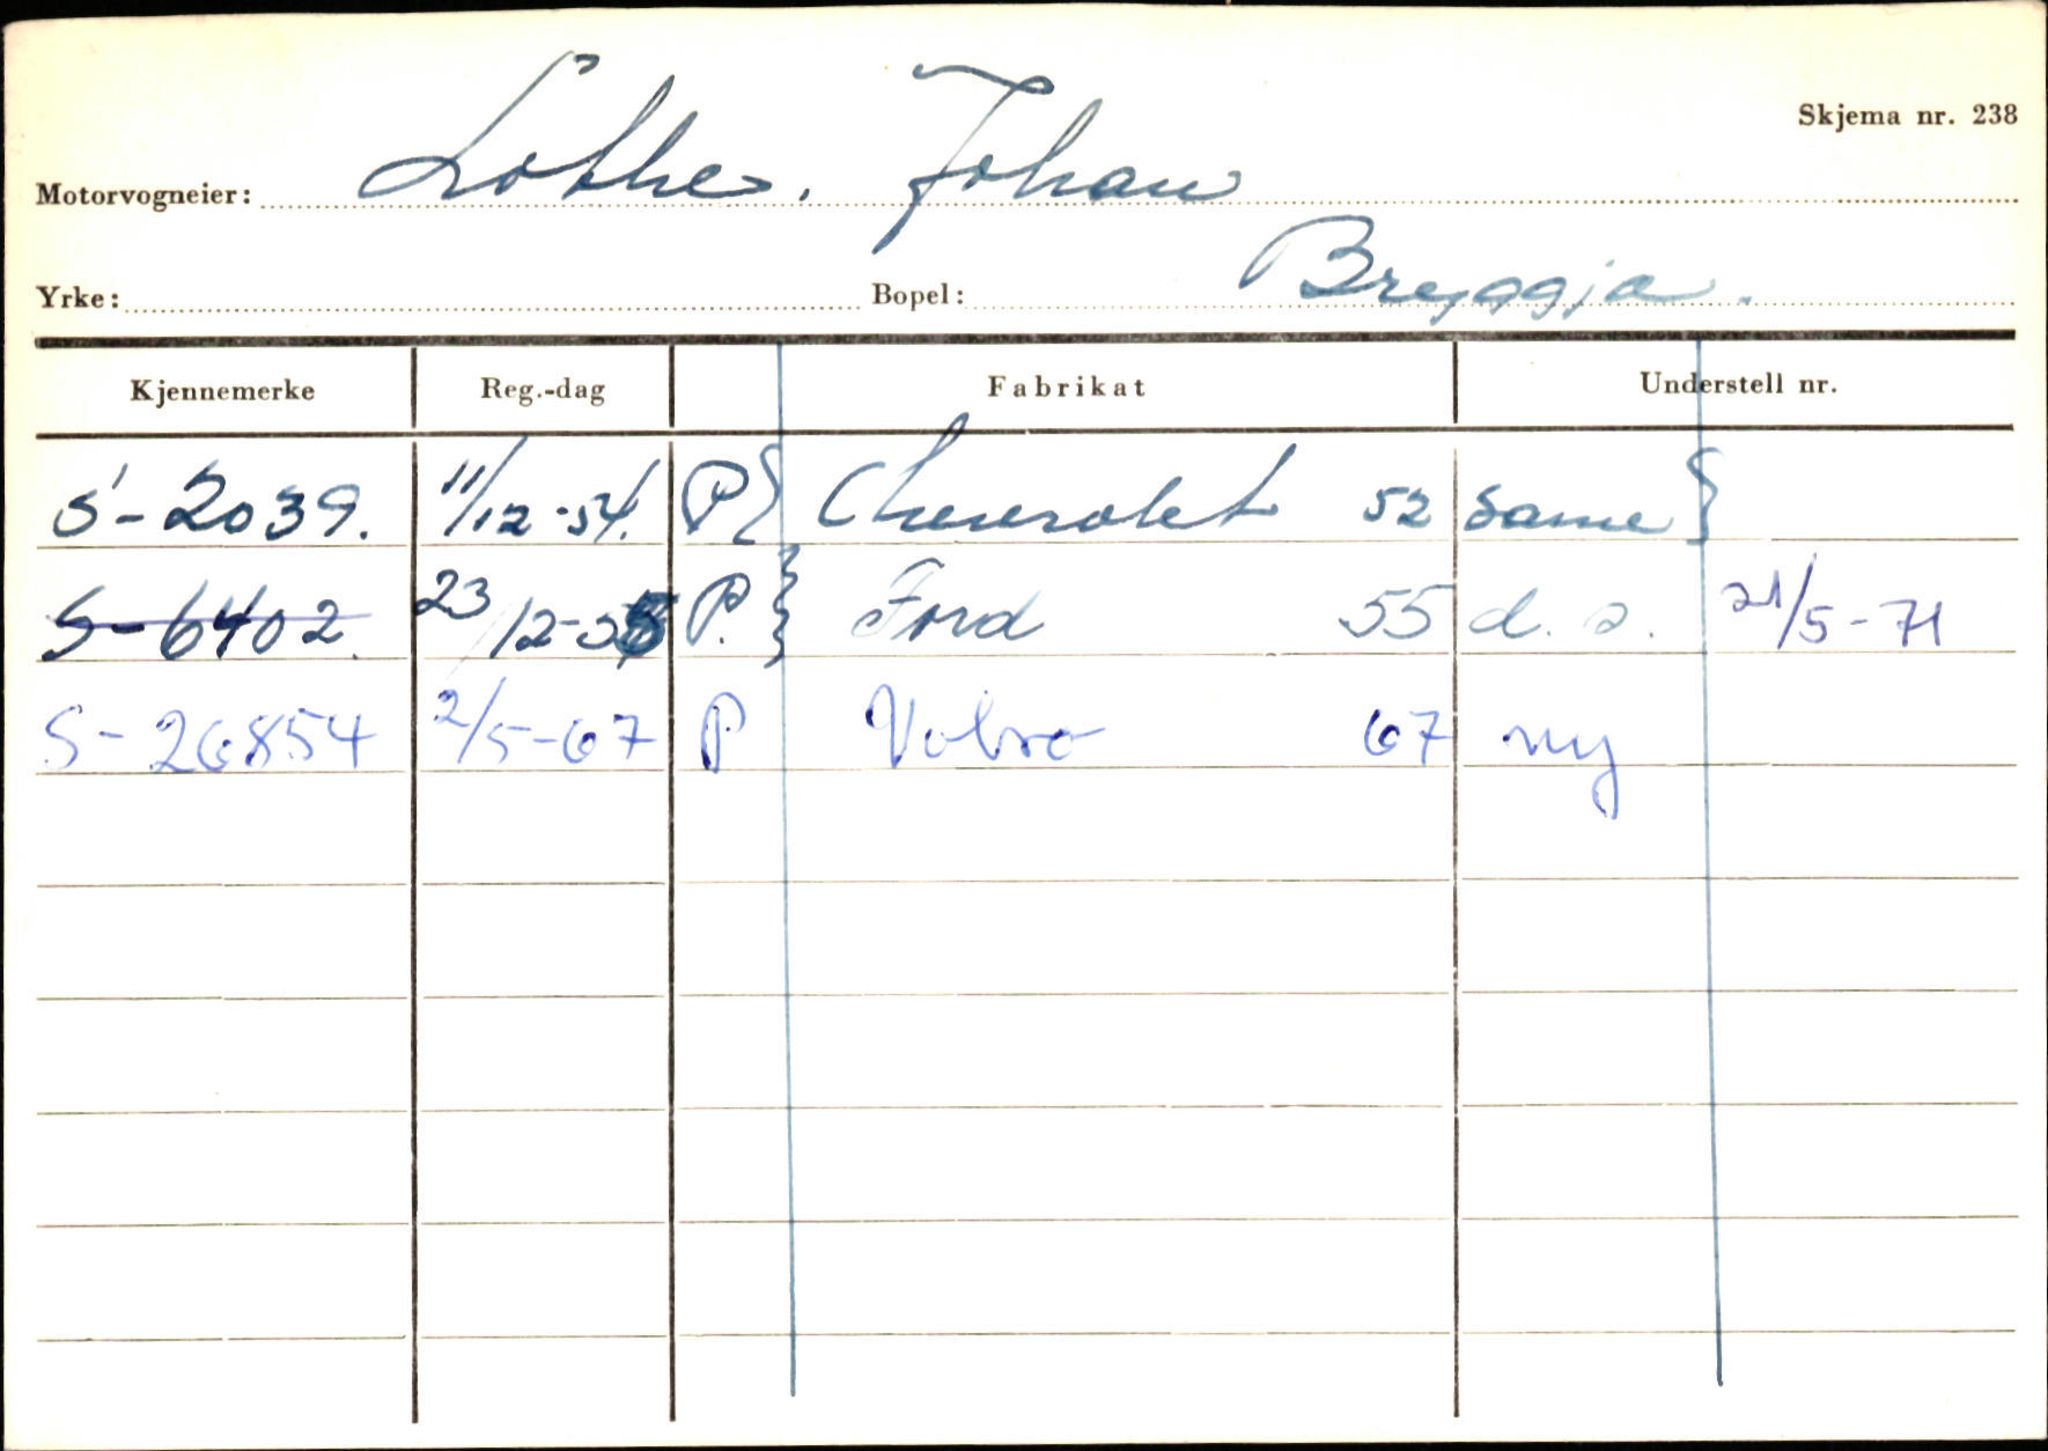 Skjema nr. 238
Motorvogneier: Lothe. Johan
Yrke: Bopel: Bryggja.
Kjennemerke Reg.-dag Fabrikat Understell nr.
S-2039. 11/12-54. P { Chevrolet 52 same }
S-6402. 23/12-55 P. } Ford 55 d. s. 21/5-71
S-26854 2/5-67 P Volvo 67 ny